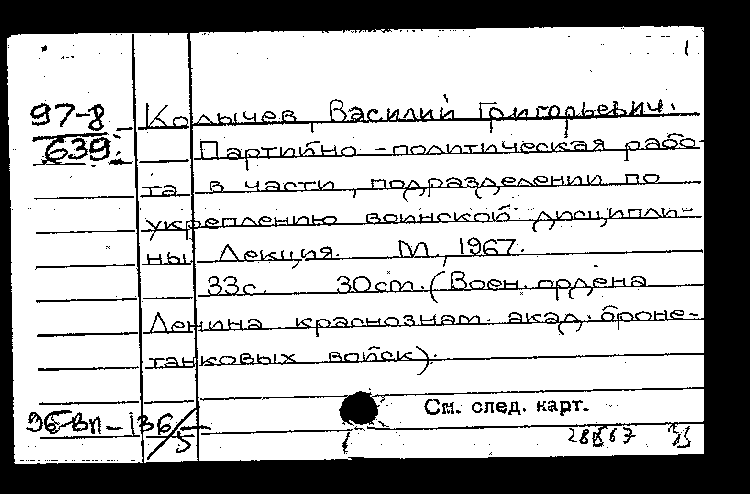 1
97-8 Колычев, Василий Григорьевич.
639. Партийно-политическая рабо-
та в части, подразделении по
укреплению воинской дисципли-
ны. Лекция. М., 1967.
33с. 30см. (Воен. ордена
Ленина краснознам. акад. броне-
танковых войск).
См. след. карт.
96-вп-136/5